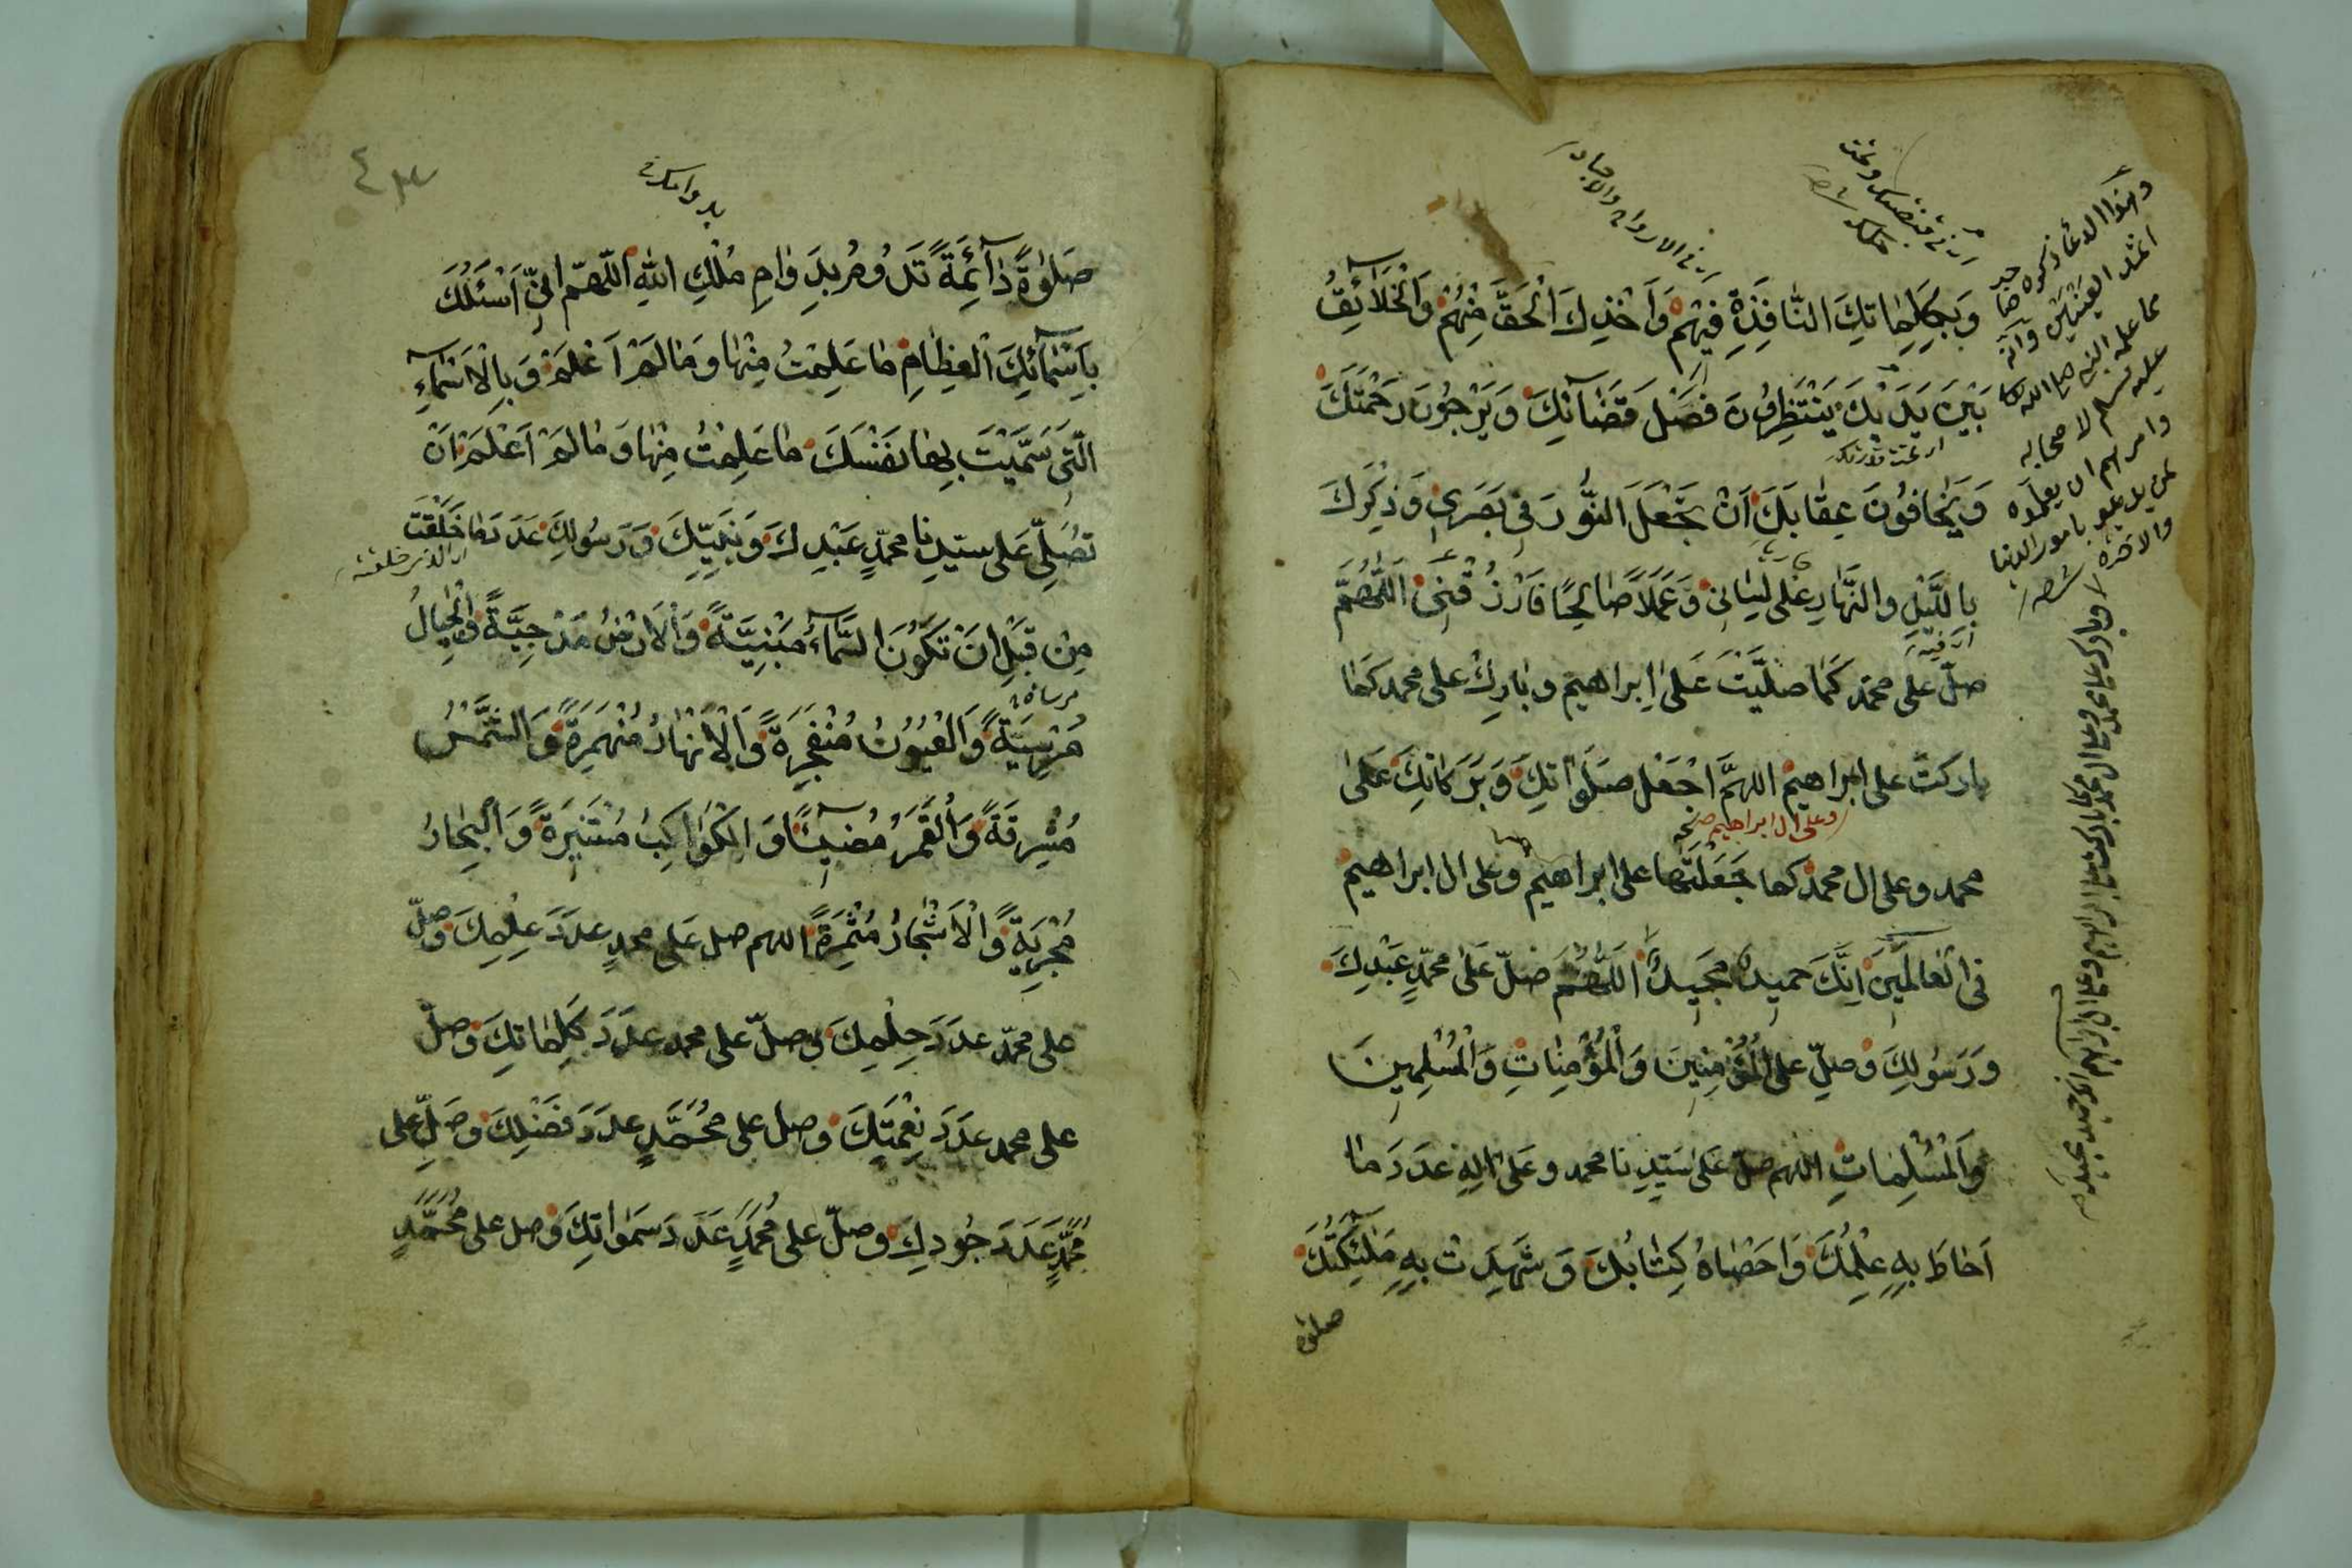 وَبِكَلِمَاتِكَ النَّافِذَةِ فِيْهِمْ وَاَخْذِكَ الْحَقَّ مِنْهُمْ وَالْخَلَآئِقُ
بَيْنَ يَدَيْكَ يَنْتَظِرُونَ فَصْلَ قَضَآئِكَ وَيَرْجُونَ رَحْمَتَكَ
وَيَخَافُونَ عِقَابَكَ اَنْ تَجْعَلَ النُّورَ فِى بَصَرِى وَذِكْرَكَ
بِاللَّيْلِ وَالنَّهَارِ عَلَى لِسَانِى وَعَمَلًا صَالِحًا فَارْزُقْنِى اَللّٰهُمَّ
صلّ على محمّد كَمَا صَلَّيْتَ عَلَى اِبراهيم وبَارِكْ على محمد كَمَا
باركتَ على ابراهيم اللهمَّ اجْعَل صَلَوَاتِكَ وَبَرَكَاتِكَ عَلَى
وعلى ال ابراهيم
محمد وعلى ال محمد كما جَعَلْتَهَا على ابراهيم وعلى ال ابراهيم
فى الْعَالَمِينَ اِنَّكَ حميدٌ مجيدٌ اَللّٰهُمَّ صَلّ عَلَى محمّدٍ عَبْدِكَ
وَرَسُولِكَ وَصلِّ على الْمُؤْمِنِينَ وَالْمُؤْمِنَاتِ وَالْمُسْلِمِينَ
وَالْمُسْلِمَاتِ اللهم صلّ عَلَى سَيِّدِنا محمد وعَلَى اٰلِهِ عَدَدَ مَا
اَحَاطَ بِهِ عِلْمُكَ وَاَحْصَاهُ كِتَابُكَ وَشَهِدَتْ بِهِ مَلٰٓئِكَتُكَ
صلوة
وهذا الدعآ ذكره
وانه
مما علمه النبى صلى الله
عليه وسلم لاصحابه
وامرهم ان يعلموه
بامور الدنيا
والاخرة
٤٣
صَلٰوةً دَآئِمَةً تَدُومُ بِدَوَامِ مُلْكِ اللهِ اَللّٰهمّ اِنِّى اَسْئَلُكَ
بِاَسْمَآئِكَ الْعِظَامِ مَا عَلِمْتُ مِنْهَا وَمَا لَمْ اَعْلَمْ وَبِالْاَسْمَآءِ
الَّتِى سَمَّيْتَ بِهَا نَفْسَكَ مَا عَلِمْتُ مِنْهَا وَمَا لَمْ اَعْلَمْ اَنْ
تُصَلِّىَ عَلى سيّدِنا محمّدٍ عَبْدِكَ وَنَبِيِّكَ وَرَسُولِكَ عَدَدَ مَا خَلَقْتَ
مِنْ قَبْلِ اَنْ تَكُونَ السَّمَآءُ مَبْنِيَّةً وَالْاَرْضُ مَدْحِيَّةً وَالْجِبَالُ
مُرْسِيَةً وَالْعُيُونُ مُنْفَجِرَةً وَالْاَنْهَارُ مُنْهَمِرَةً وَالشَّمْسُ
مُشْرِقَةً وَالْقَمَرُ مُضِيئًا وَالْكَوَاكِبُ مُسْتَنِيرَةً وَالْبِحَارُ
مُجْرِيَةً وَالْاَشْجَارُ مُثْمِرَةً اللهم صل عَلَى محمدٍ عدَدَ عِلْمِكَ وَصلّ
على محمّدٍ عدَدَ حِلْمِكَ وصلّ على محمد عدَدَ كَلِمَاتِكَ وَصلّ
على محمد عدَدَ نِعْمَتِكَ وصل على مُحَمَّدٍ عدَدَ فَضْلِكَ وصَلِّ على
محمّدٍ عَدَدَ جُودِكَ وصلّ على مُحَمَّدٍ عَدَدَ سَمٰوَاتِكَ وَصل على مُحَمَّدٍ